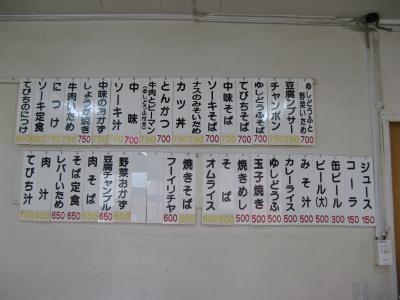 ゆしどうふと野菜いため 700
豆腐ンブサー 700
チャンポン 700
ゆしどうふそば 700
てびちそば 700
中味そば 700
ソーキそば 700
ナスのみそいため 700
カツ丼 700
とんかつ 700
牛肉とピーマン 700
中味 700
ソーキ汁
中味のおかず 750
しょうが焼き 750
牛肉いため 750
につけ
ソーキ定食
てびちのにつけ
ジュース 150
コーラ 150
缶ビール 300
ビール(大)
みそ汁 500
カレーライス 500
ゆしどうふ 500
玉子焼き 500
焼きめし 500
そば
オムライス
焼きそば 600
フーイリチャ 600
野菜おかず
豆腐チャンプル 650
肉そば 650
そば定食 650
レバーいため 650
肉汁
てびち汁